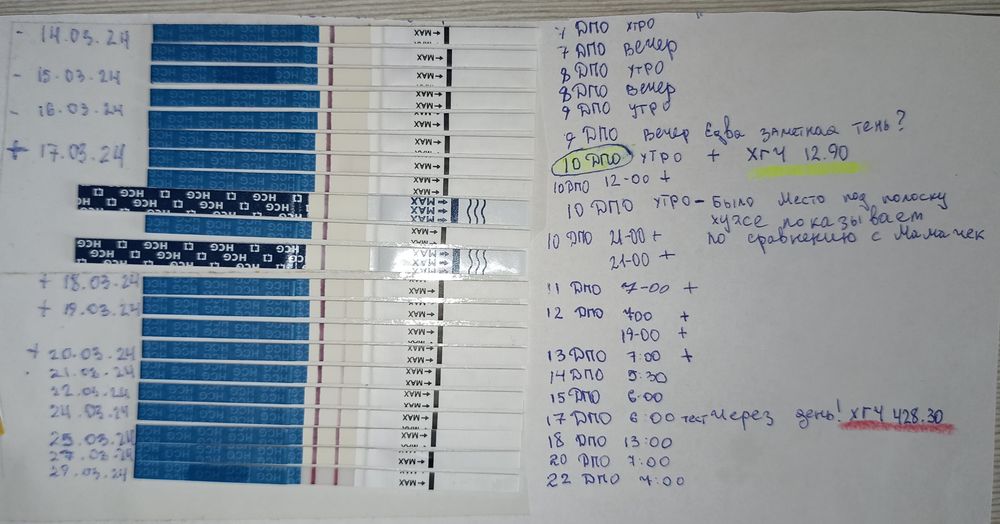 - 14.03.24
- 15.03.24
- 16.03.24
+ 17.03.24
+ 18.03.24
+ 19.03.24
+ 20.03.24
21.03.24
22.03.24
24.03.24
25.03.24
27.03.24
29.03.24
HCG
MAX
7 ДПО УТРО
7 ДПО Вечер
8 ДПО УТРО
8 ДПО Вечер
9 ДПО УТРО
9 ДПО Вечер Едва заметная тень?
10 ДПО УТРО + ХГЧ 12.90
10 ДПО 12-00 +
10 ДПО УТРО - Было Место под полоску
хуже показывает
по сравнению с Мамачек
10 ДПО 21-00 +
21-00 +
11 ДПО 7-00 +
12 ДПО 700 +
19-00 +
13 ДПО 7:00 +
14 ДПО 5:30
15 ДПО 6:00
17 ДПО 6:00 тест через день! ХГЧ 428.30
18 ДПО 13:00
20 ДПО 7:00
22 ДПО 7:00